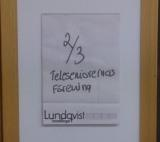 2/3
Teleseniorernas
Förening
Lundqvist